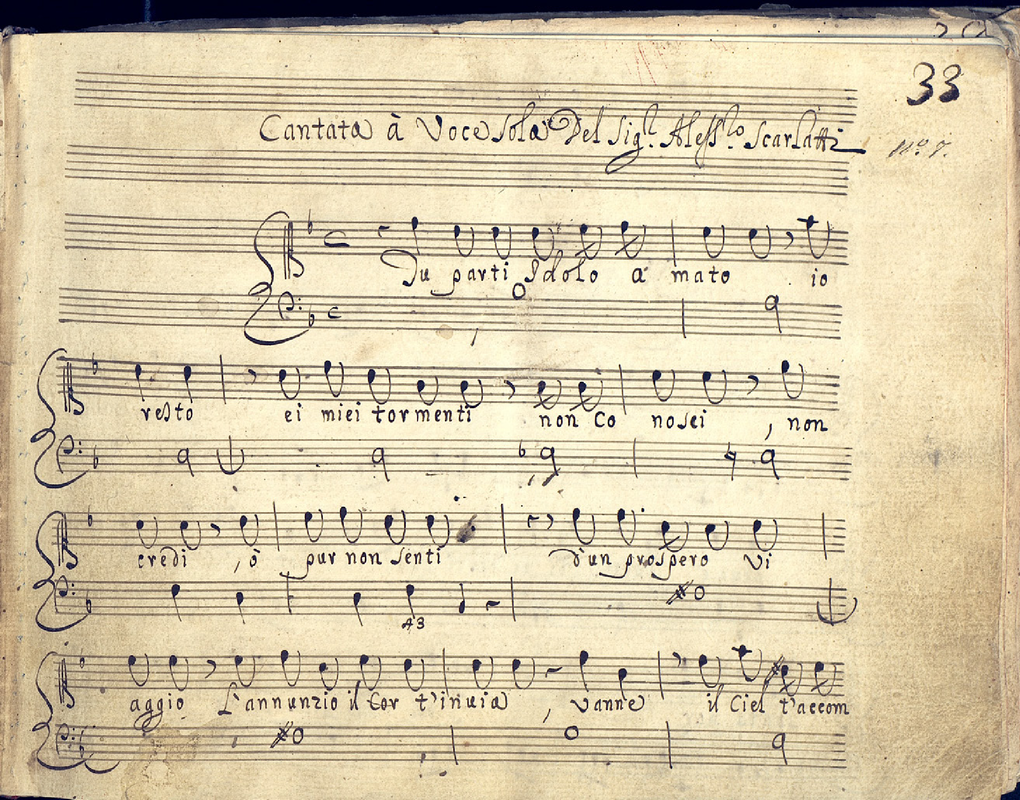 33
Cantata à Voce Sola Del Sigr. Alessro. Scarlatti
No. 7.
Tu parti Idolo a mato io
resto ei miei tormenti non Co nosci , non
credi , ò pur non senti d'un prospero vi
43
aggio L'annunzio il Cor t'inuia , Vanne il Ciel t'accom